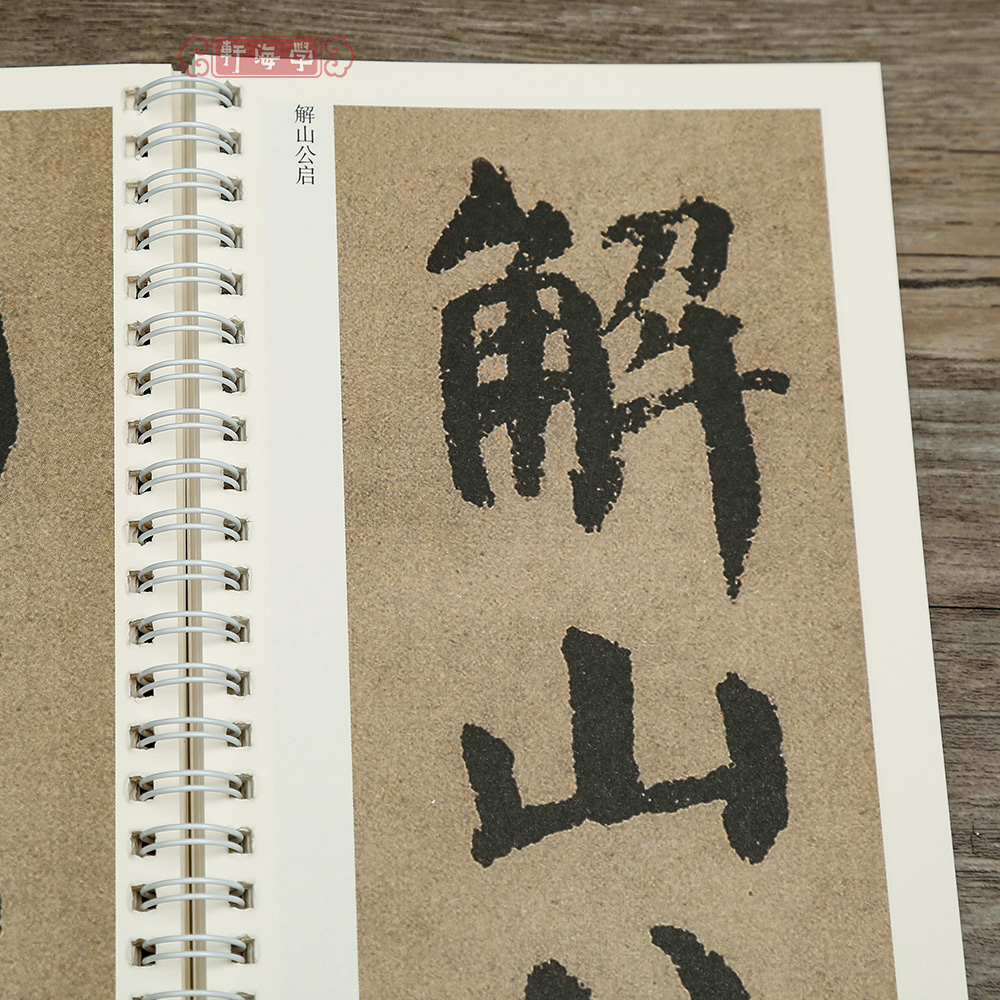 軒海学
解山公启
解山